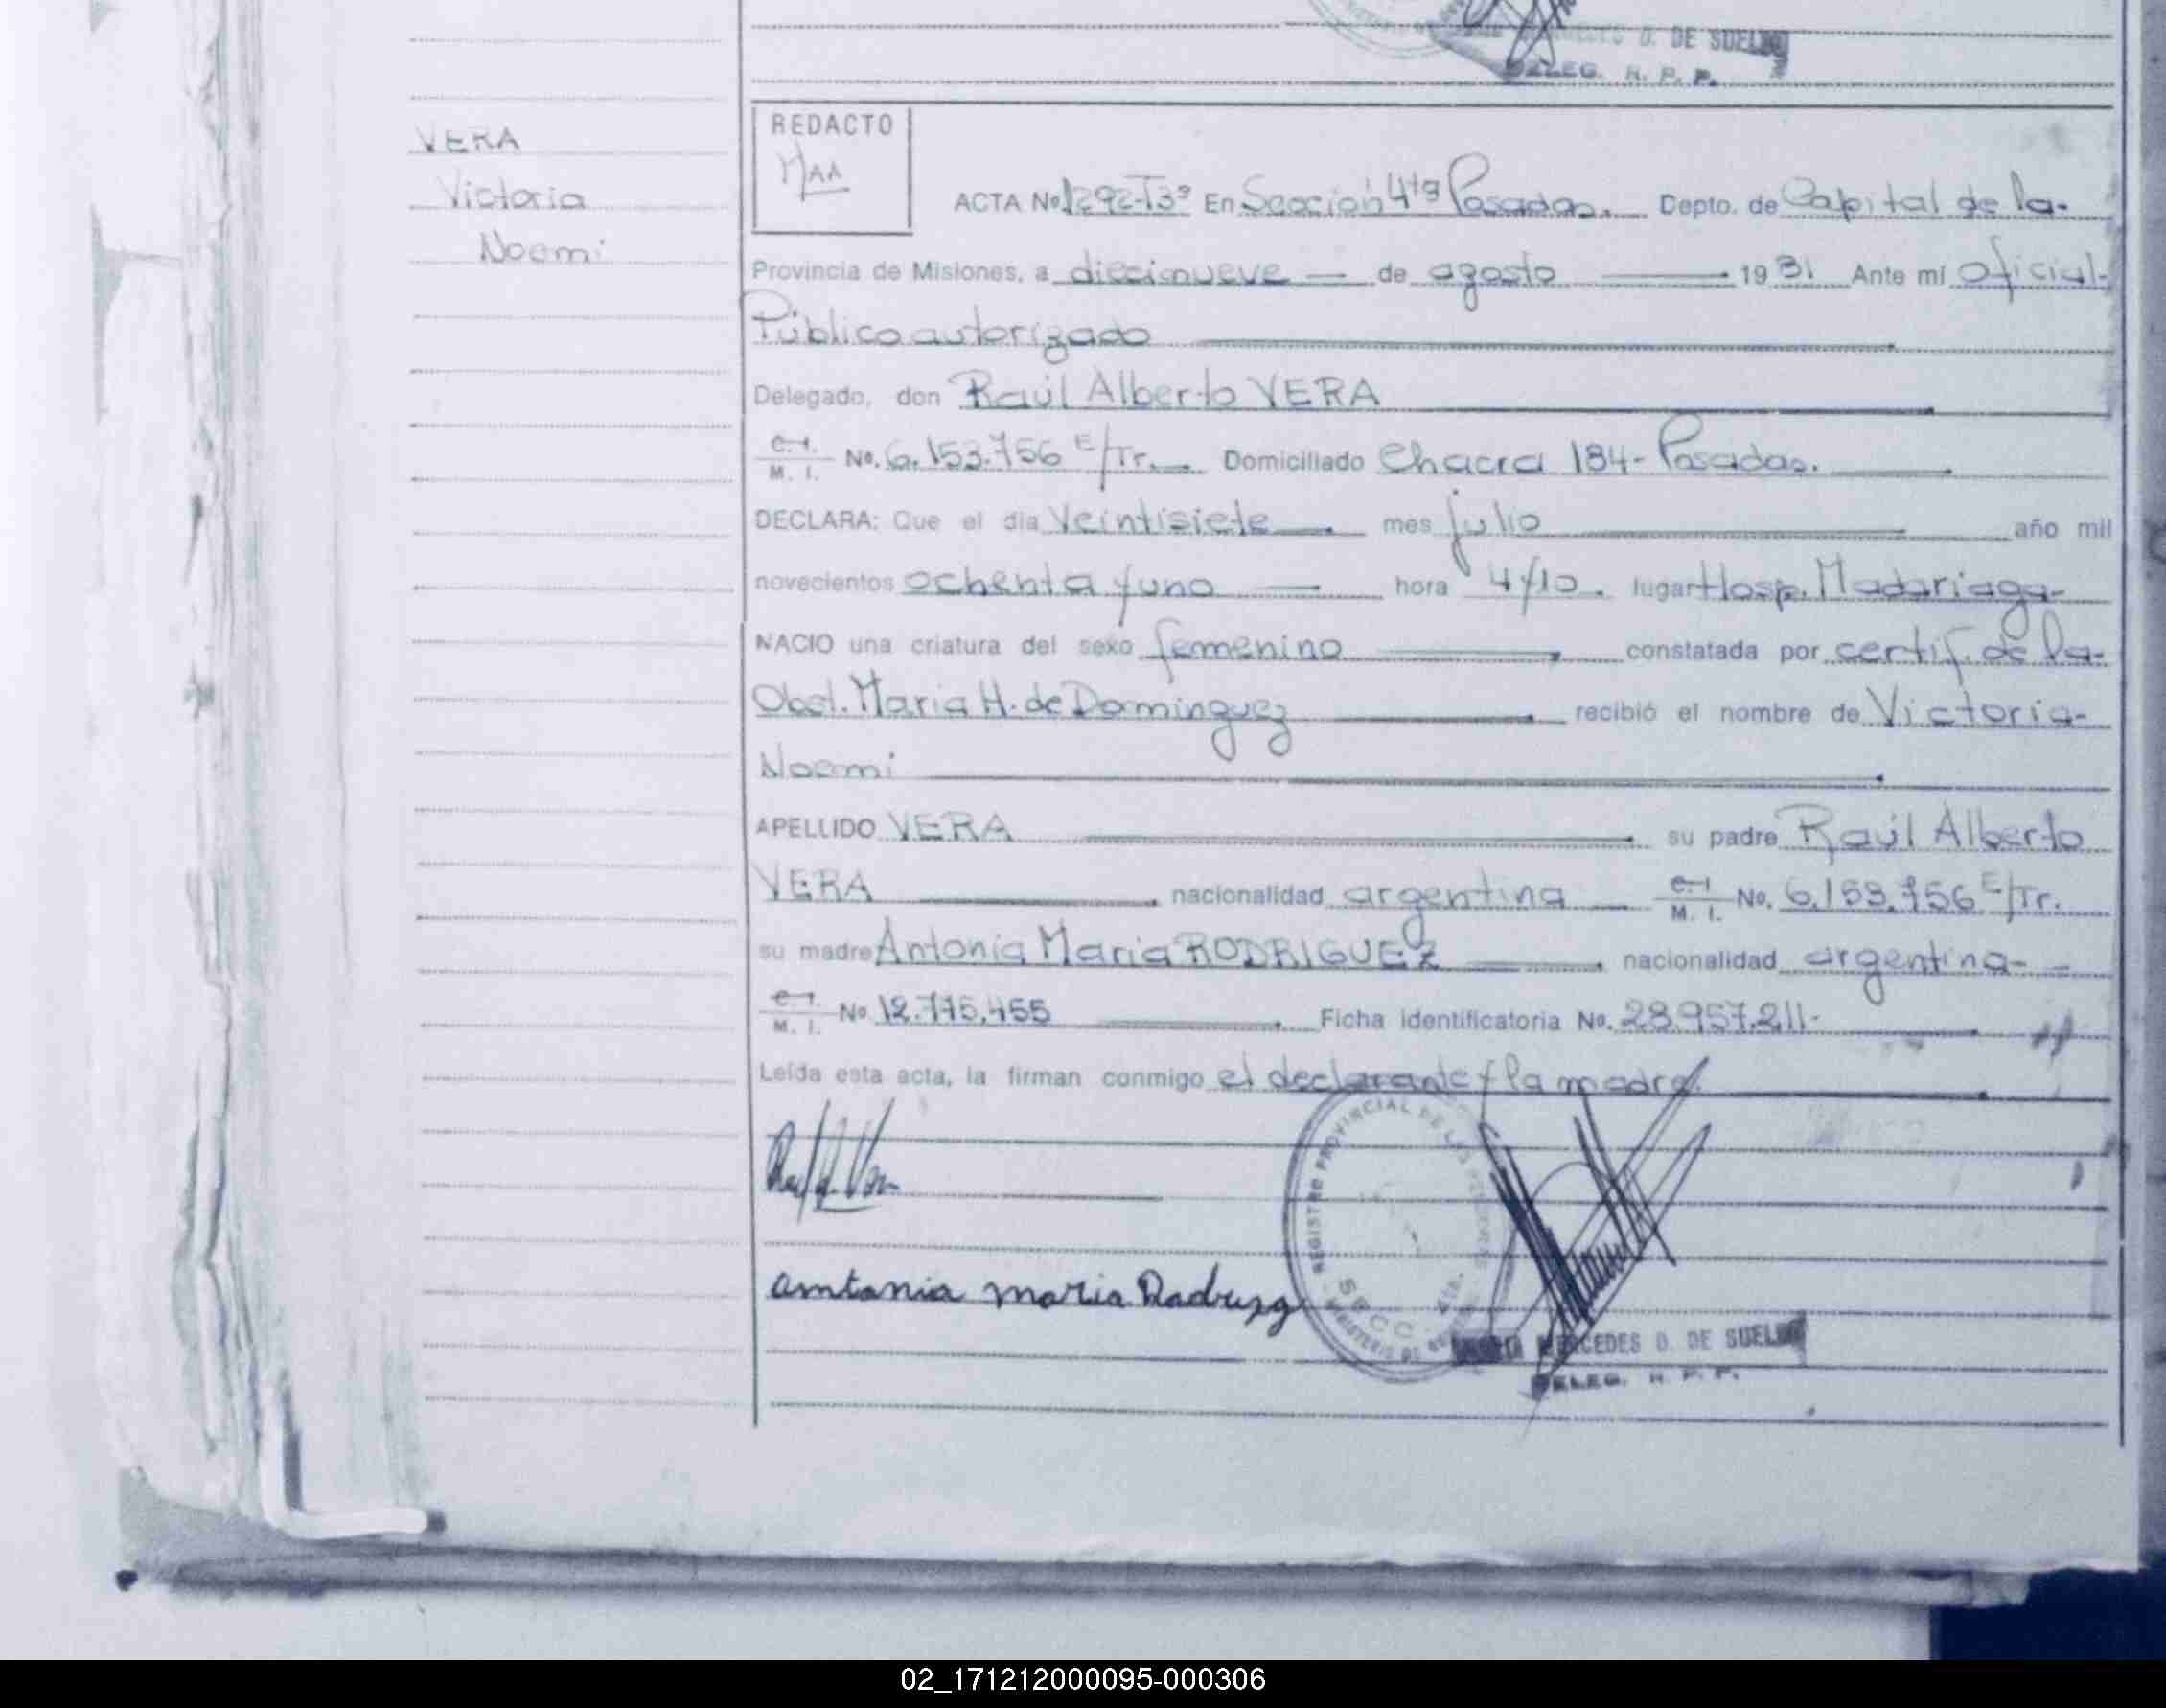 D. DE SUELDO
DELEG. R. P. P.
VERA
Victoria
Noemi
REDACTO
MAA
ACTA No 1292-T3º En Sección 4ta Posadas. Depto. de Capital de la-
Provincia de Misiones, a diecinueve — de agosto — 1981 Ante mí Oficial-
Público autorizado
Delegado, don Raúl Alberto VERA
C.I. M. I. No. 6.153.756 E/Tr. Domiciliado Chacra 184- Posadas.
DECLARA: Que el día veintisiete mes julio año mil
novecientos ochenta y uno — hora 4/10. lugar Hosp. Madariaga-
NACIO una criatura del sexo femenino constatada por certif. de la-
Obst. Maria H. de Dominguez recibió el nombre de Victoria-
Noemi
APELLIDO VERA su padre Raúl Alberto
VERA nacionalidad argentina — C.I. M. I. No. 6.153.756 E/Tr.
su madre Antonia Maria RODRIGUEZ nacionalidad argentina-
C.I. M. I. No 12.775.455 Ficha identificatoria No. 28.957.211-
Leída esta acta, la firman conmigo el declarante y la madre.
REGISTRO PROVINCIAL DE LAS PERSONAS
SECC. 4ta.
antonia maria Rodrusg
MERCEDES D. DE SUELDO
DELEG. R. P. P.
02_171212000095-000306